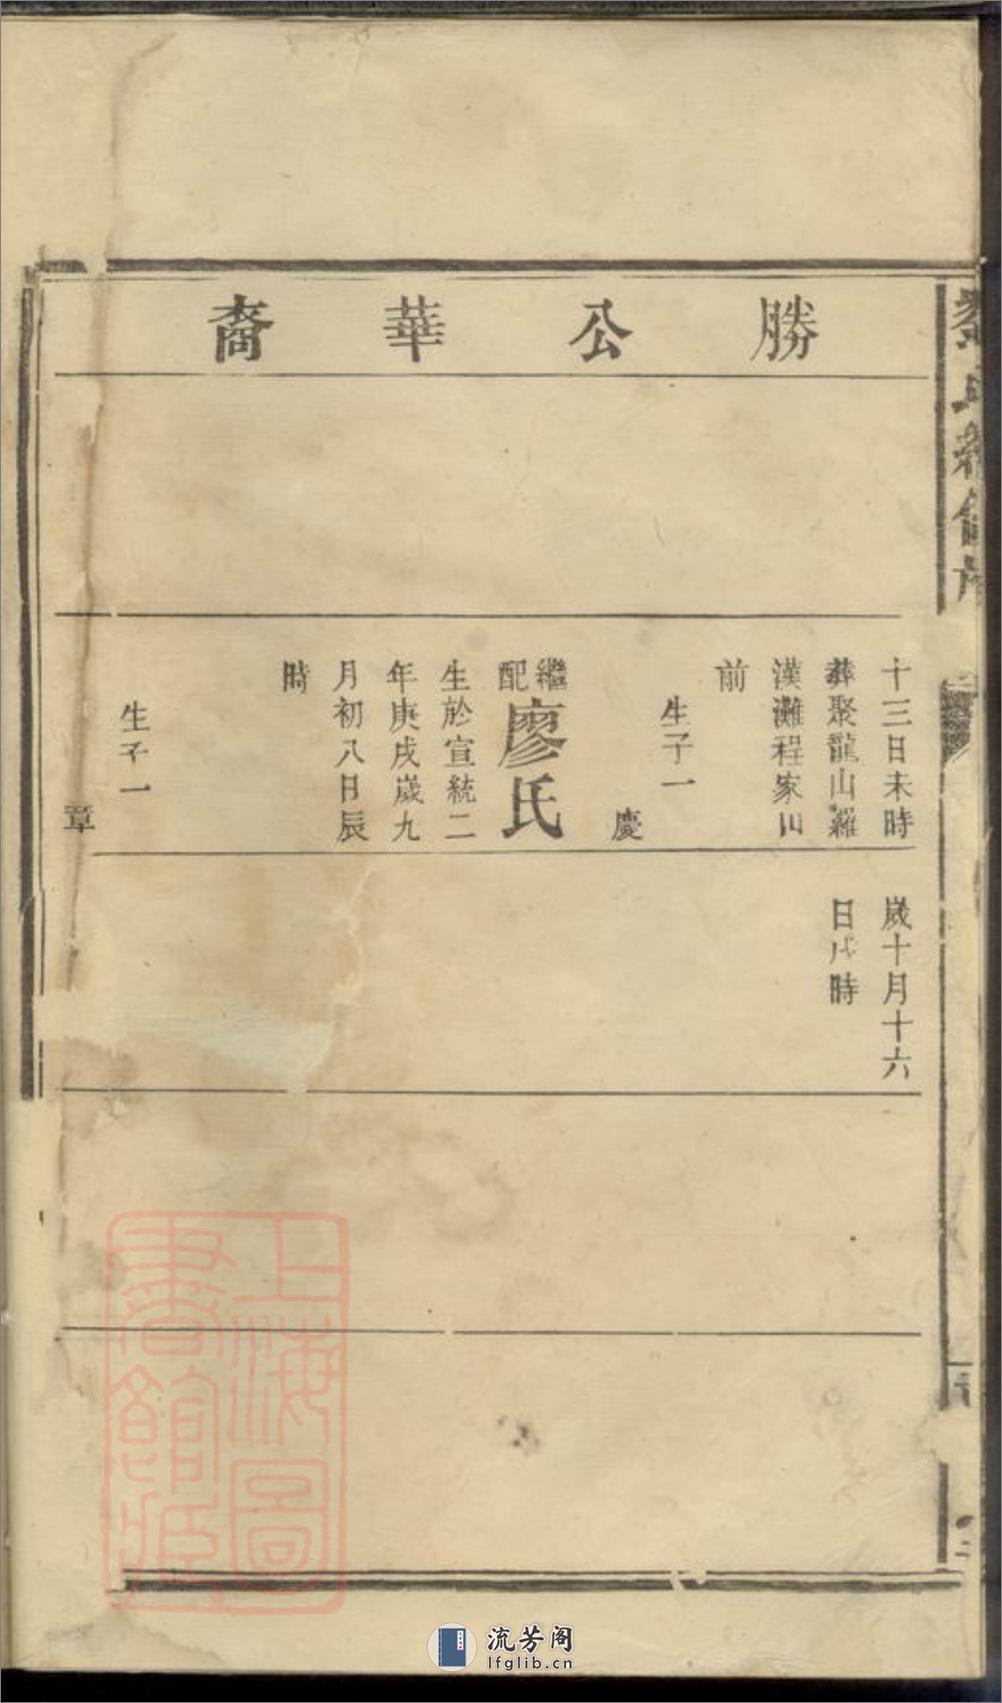 勝公華裔
十三日未時
葬聚龍山羅
漢灘程家山
前
生子一
慶
繼配廖氏
生於宣統二
年庚戌歲九
月初八日辰
時
生子一
章
歲十月十六
日戌時
上海圖
書館藏
流芳阁
lfglib.cn